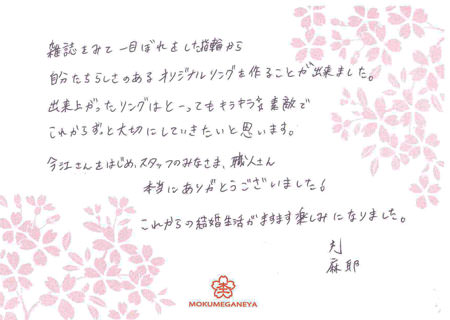 雑誌をみて一目ぼれをした指輪から
自分たちらしさのあるオリジナルリングを作ることが出来ました。
出来上がったリングはとーってもキラキラで素敵で
これからずっと大切にしていきたいと思います。
今江さんをはじめ、スタッフのみなさま、職人さん
本当にありがとうございました!
これからの結婚生活がますます楽しみになりました。
麻耶
MOKUMEGANEYA